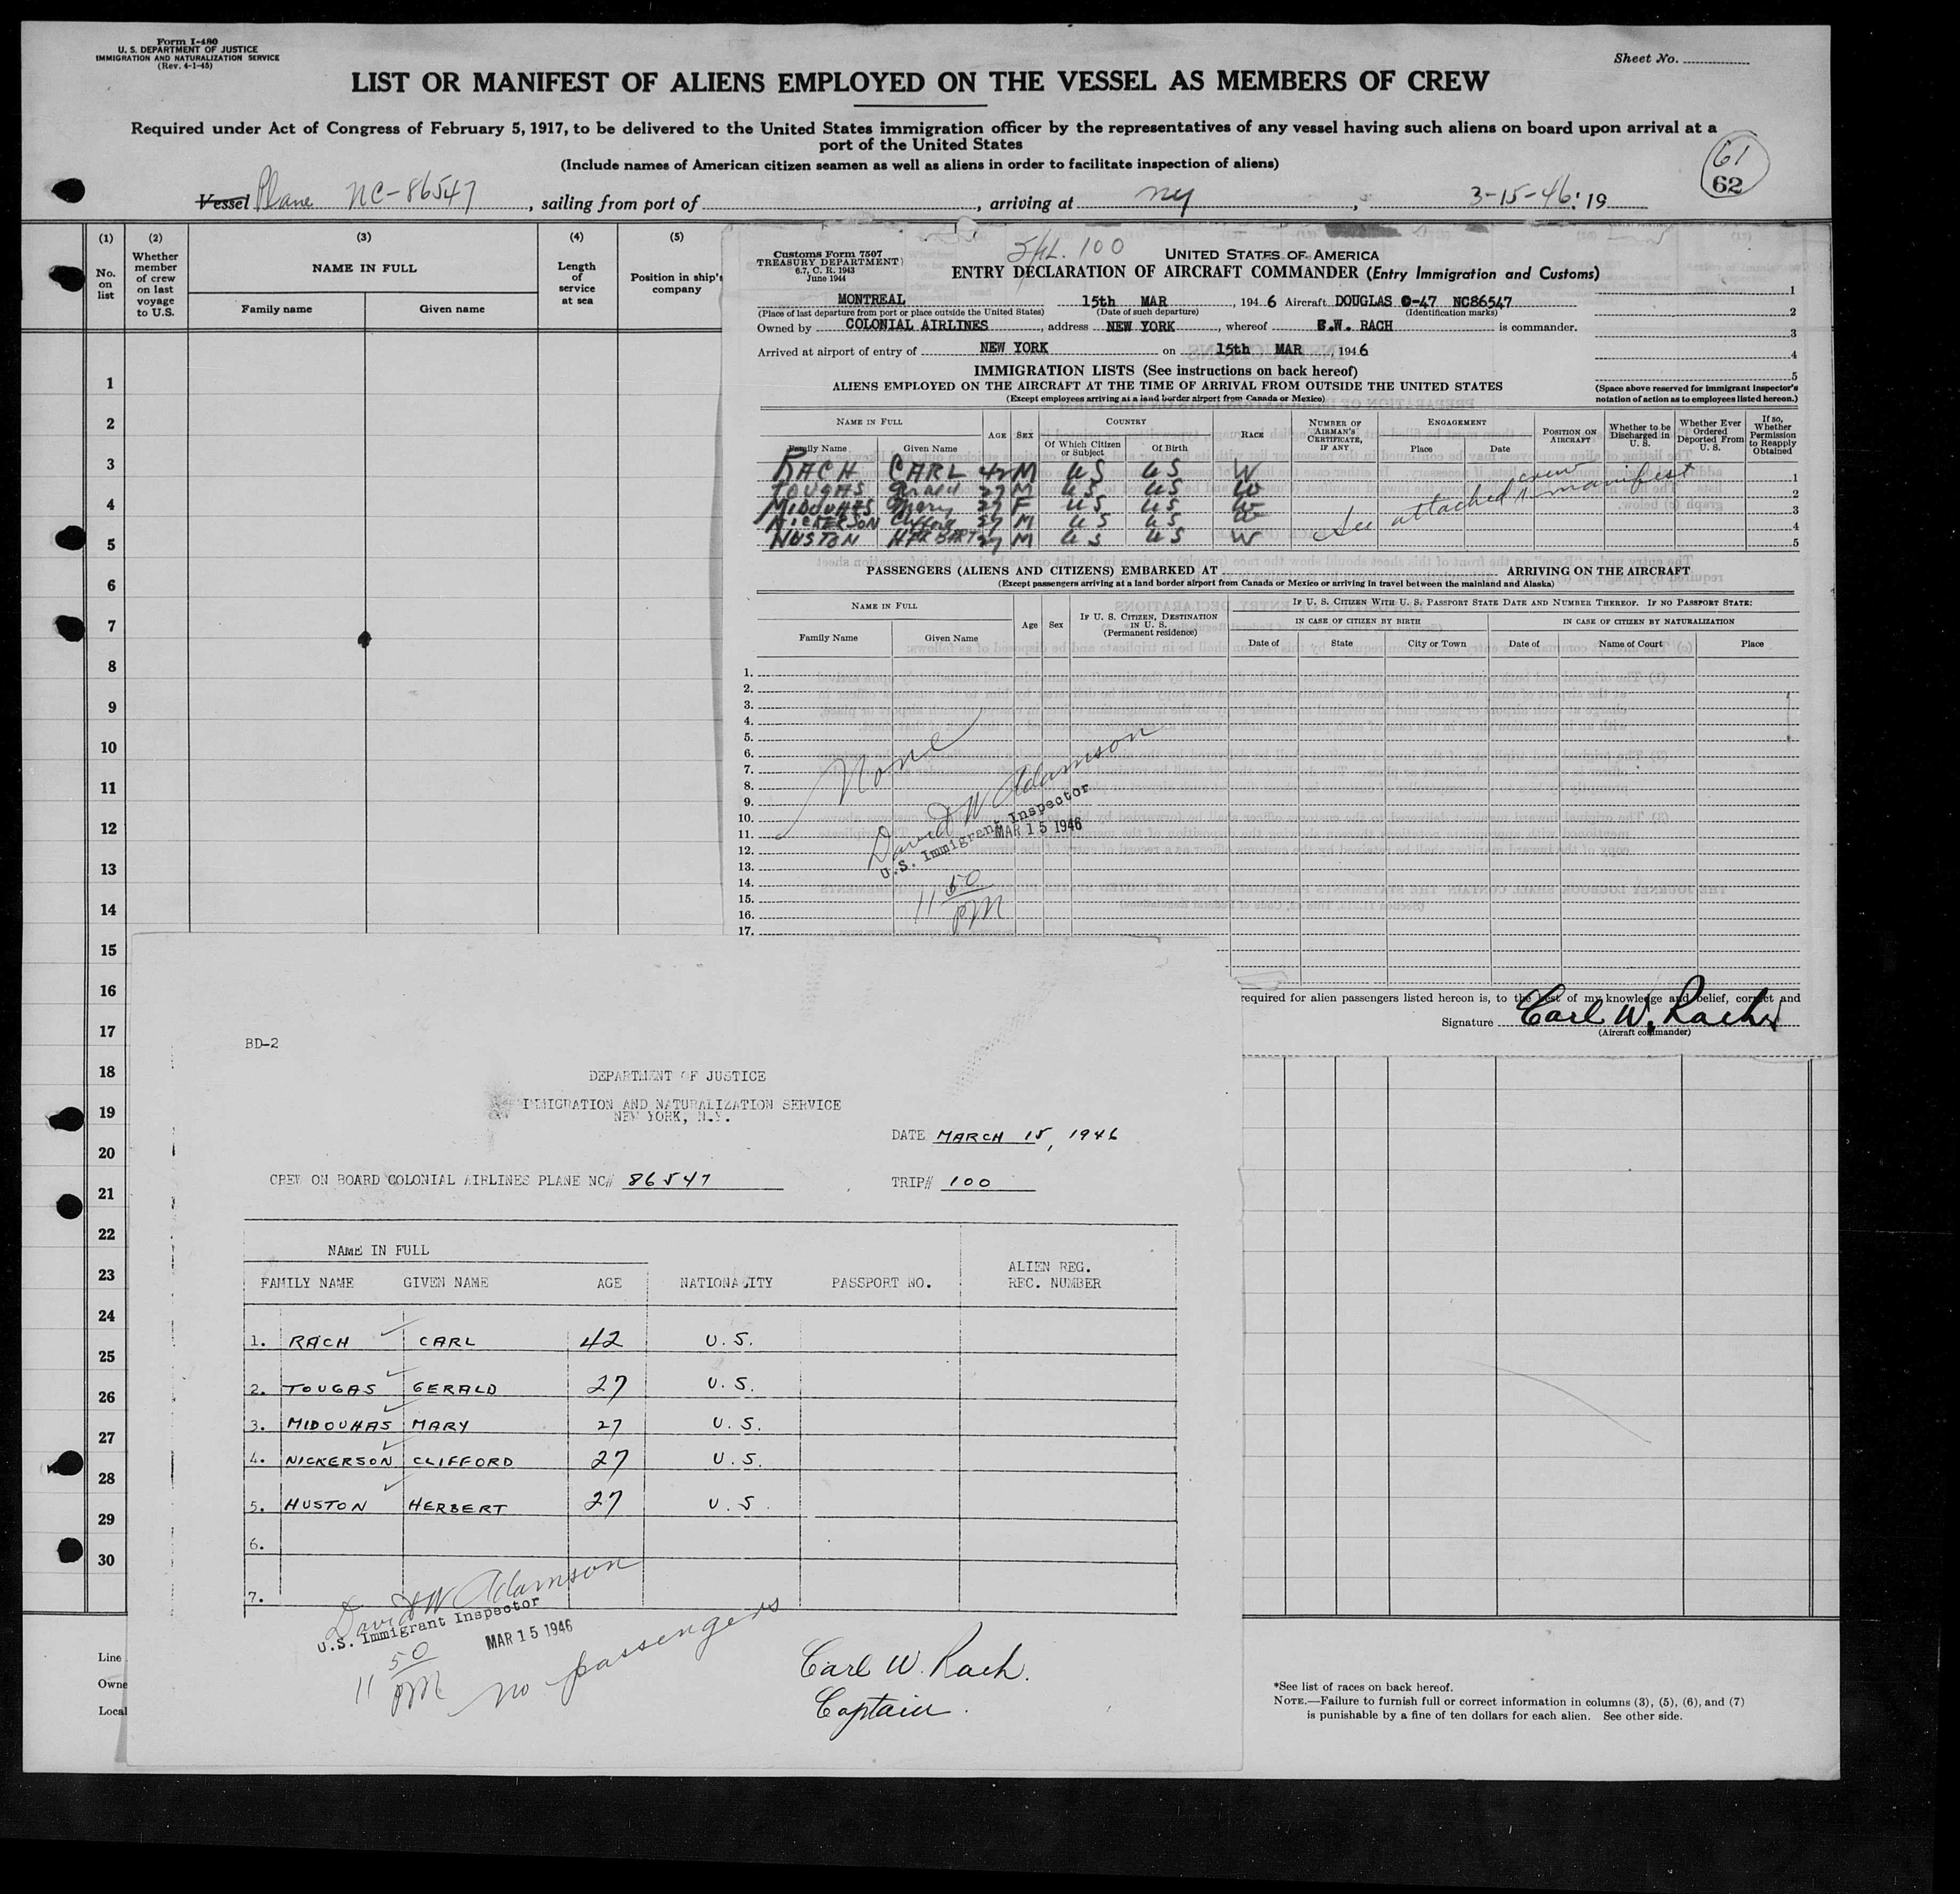 Form I-480
U. S. DEPARTMENT OF JUSTICE
IMMIGRATION AND NATURALIZATION SERVICE
(Rev. 4-1-45)
Sheet No.
LIST OR MANIFEST OF ALIENS EMPLOYED ON THE VESSEL AS MEMBERS OF CREW
Required under Act of Congress of February 5, 1917, to be delivered to the United States immigration officer by the representatives of any vessel having such aliens on board upon arrival at a
port of the United States
(Include names of American citizen seamen as well as aliens in order to facilitate inspection of aliens)
61
62
Vessel Plane NC-86547, sailing from port of , arriving at NY , 3-15-46: 19
(1) (2) (3) (4) (5)
No. on list
Whether member of crew on last voyage to U.S.
NAME IN FULL
Family name Given name
Length of service at sea
Position in ship's company
1
2
3
4
5
6
7
8
9
10
11
12
13
14
15
16
17
18
19
20
21
22
23
24
25
26
27
28
29
30
Line
Owne
Local
Customs Form 7507
TREASURY DEPARTMENT
6.7, C. R. 1943
June 1944
100
UNITED STATES OF AMERICA
ENTRY DECLARATION OF AIRCRAFT COMMANDER (Entry Immigration and Customs)
MONTREAL 15th MAR , 1946 Aircraft DOUGLAS C-47 NC86547
(Place of last departure from port or place outside the United States) (Date of such departure) (Identification marks)
Owned by COLONIAL AIRLINES , address NEW YORK , whereof C.W. RACH is commander.
Arrived at airport of entry of NEW YORK on 15th MAR , 1946
1
2
3
4
5
(Space above reserved for immigrant inspector's
notation of action as to employees listed hereon.)
IMMIGRATION LISTS (See instructions on back hereof)
ALIENS EMPLOYED ON THE AIRCRAFT AT THE TIME OF ARRIVAL FROM OUTSIDE THE UNITED STATES
(Except employees arriving at a land border airport from Canada or Mexico)
NAME IN FULL
Family Name Given Name
AGE SEX
COUNTRY
Of Which Citizen or Subject Of Birth
RACE
NUMBER OF AIRMAN'S CERTIFICATE, IF ANY
ENGAGEMENT
Place Date
POSITION ON AIRCRAFT
Whether to be Discharged in U. S.
Whether Ever Ordered Deported From U. S.
If so, Whether Permission to Reapply Obtained
RACH CARL 42 M US US W 1
TOUGAS Gerald 27 M US US W 2
MIDOUHAS Mary 27 F US US W 3
NICKERSON Clifford 27 M US US W 4
HUSTON HERBERT 27 M US US W 5
See attached crew manifest
PASSENGERS (ALIENS AND CITIZENS) EMBARKED AT ARRIVING ON THE AIRCRAFT
(Except passengers arriving at a land border airport from Canada or Mexico or arriving in travel between the mainland and Alaska)
NAME IN FULL
Family Name Given Name
Age Sex
IF U. S. CITIZEN, DESTINATION IN U. S. (Permanent residence)
IF U. S. CITIZEN WITH U. S. PASSPORT STATE DATE AND NUMBER THEREOF. IF NO PASSPORT STATE:
IN CASE OF CITIZEN BY BIRTH IN CASE OF CITIZEN BY NATURALIZATION
Date of State City or Town Date of Name of Court Place
1.
2.
3.
4.
5.
6.
7.
8.
9.
10.
11.
12.
13.
14.
15.
16.
17.
None
David W Adamson
U.S. Immigrant Inspector
MAR 15 1946
11 50 PM
required for alien passengers listed hereon is, to the best of my knowledge and belief, correct and
Signature Carl W. Rach
(Aircraft commander)
BD-2
DEPARTMENT OF JUSTICE
IMMIGRATION AND NATURALIZATION SERVICE
NEW YORK, N.Y.
DATE MARCH 15, 1946
CREW ON BOARD COLONIAL AIRLINES PLANE NC# 86547 TRIP# 100
NAME IN FULL
FAMILY NAME GIVEN NAME AGE NATIONALITY PASSPORT NO. ALIEN REG. REC. NUMBER
1. RACH CARL 42 U.S.
2. TOUGAS GERALD 27 U.S.
3. MIDOUHAS MARY 27 U.S.
4. NICKERSON CLIFFORD 27 U.S.
5. HUSTON HERBERT 27 U.S.
6.
7.
David W Adamson
U.S. Immigrant Inspector
MAR 15 1946
11 50 PM no passengers
Carl W. Rach.
Captain.
*See list of races on back hereof.
NOTE.—Failure to furnish full or correct information in columns (3), (5), (6), and (7)
is punishable by a fine of ten dollars for each alien. See other side.